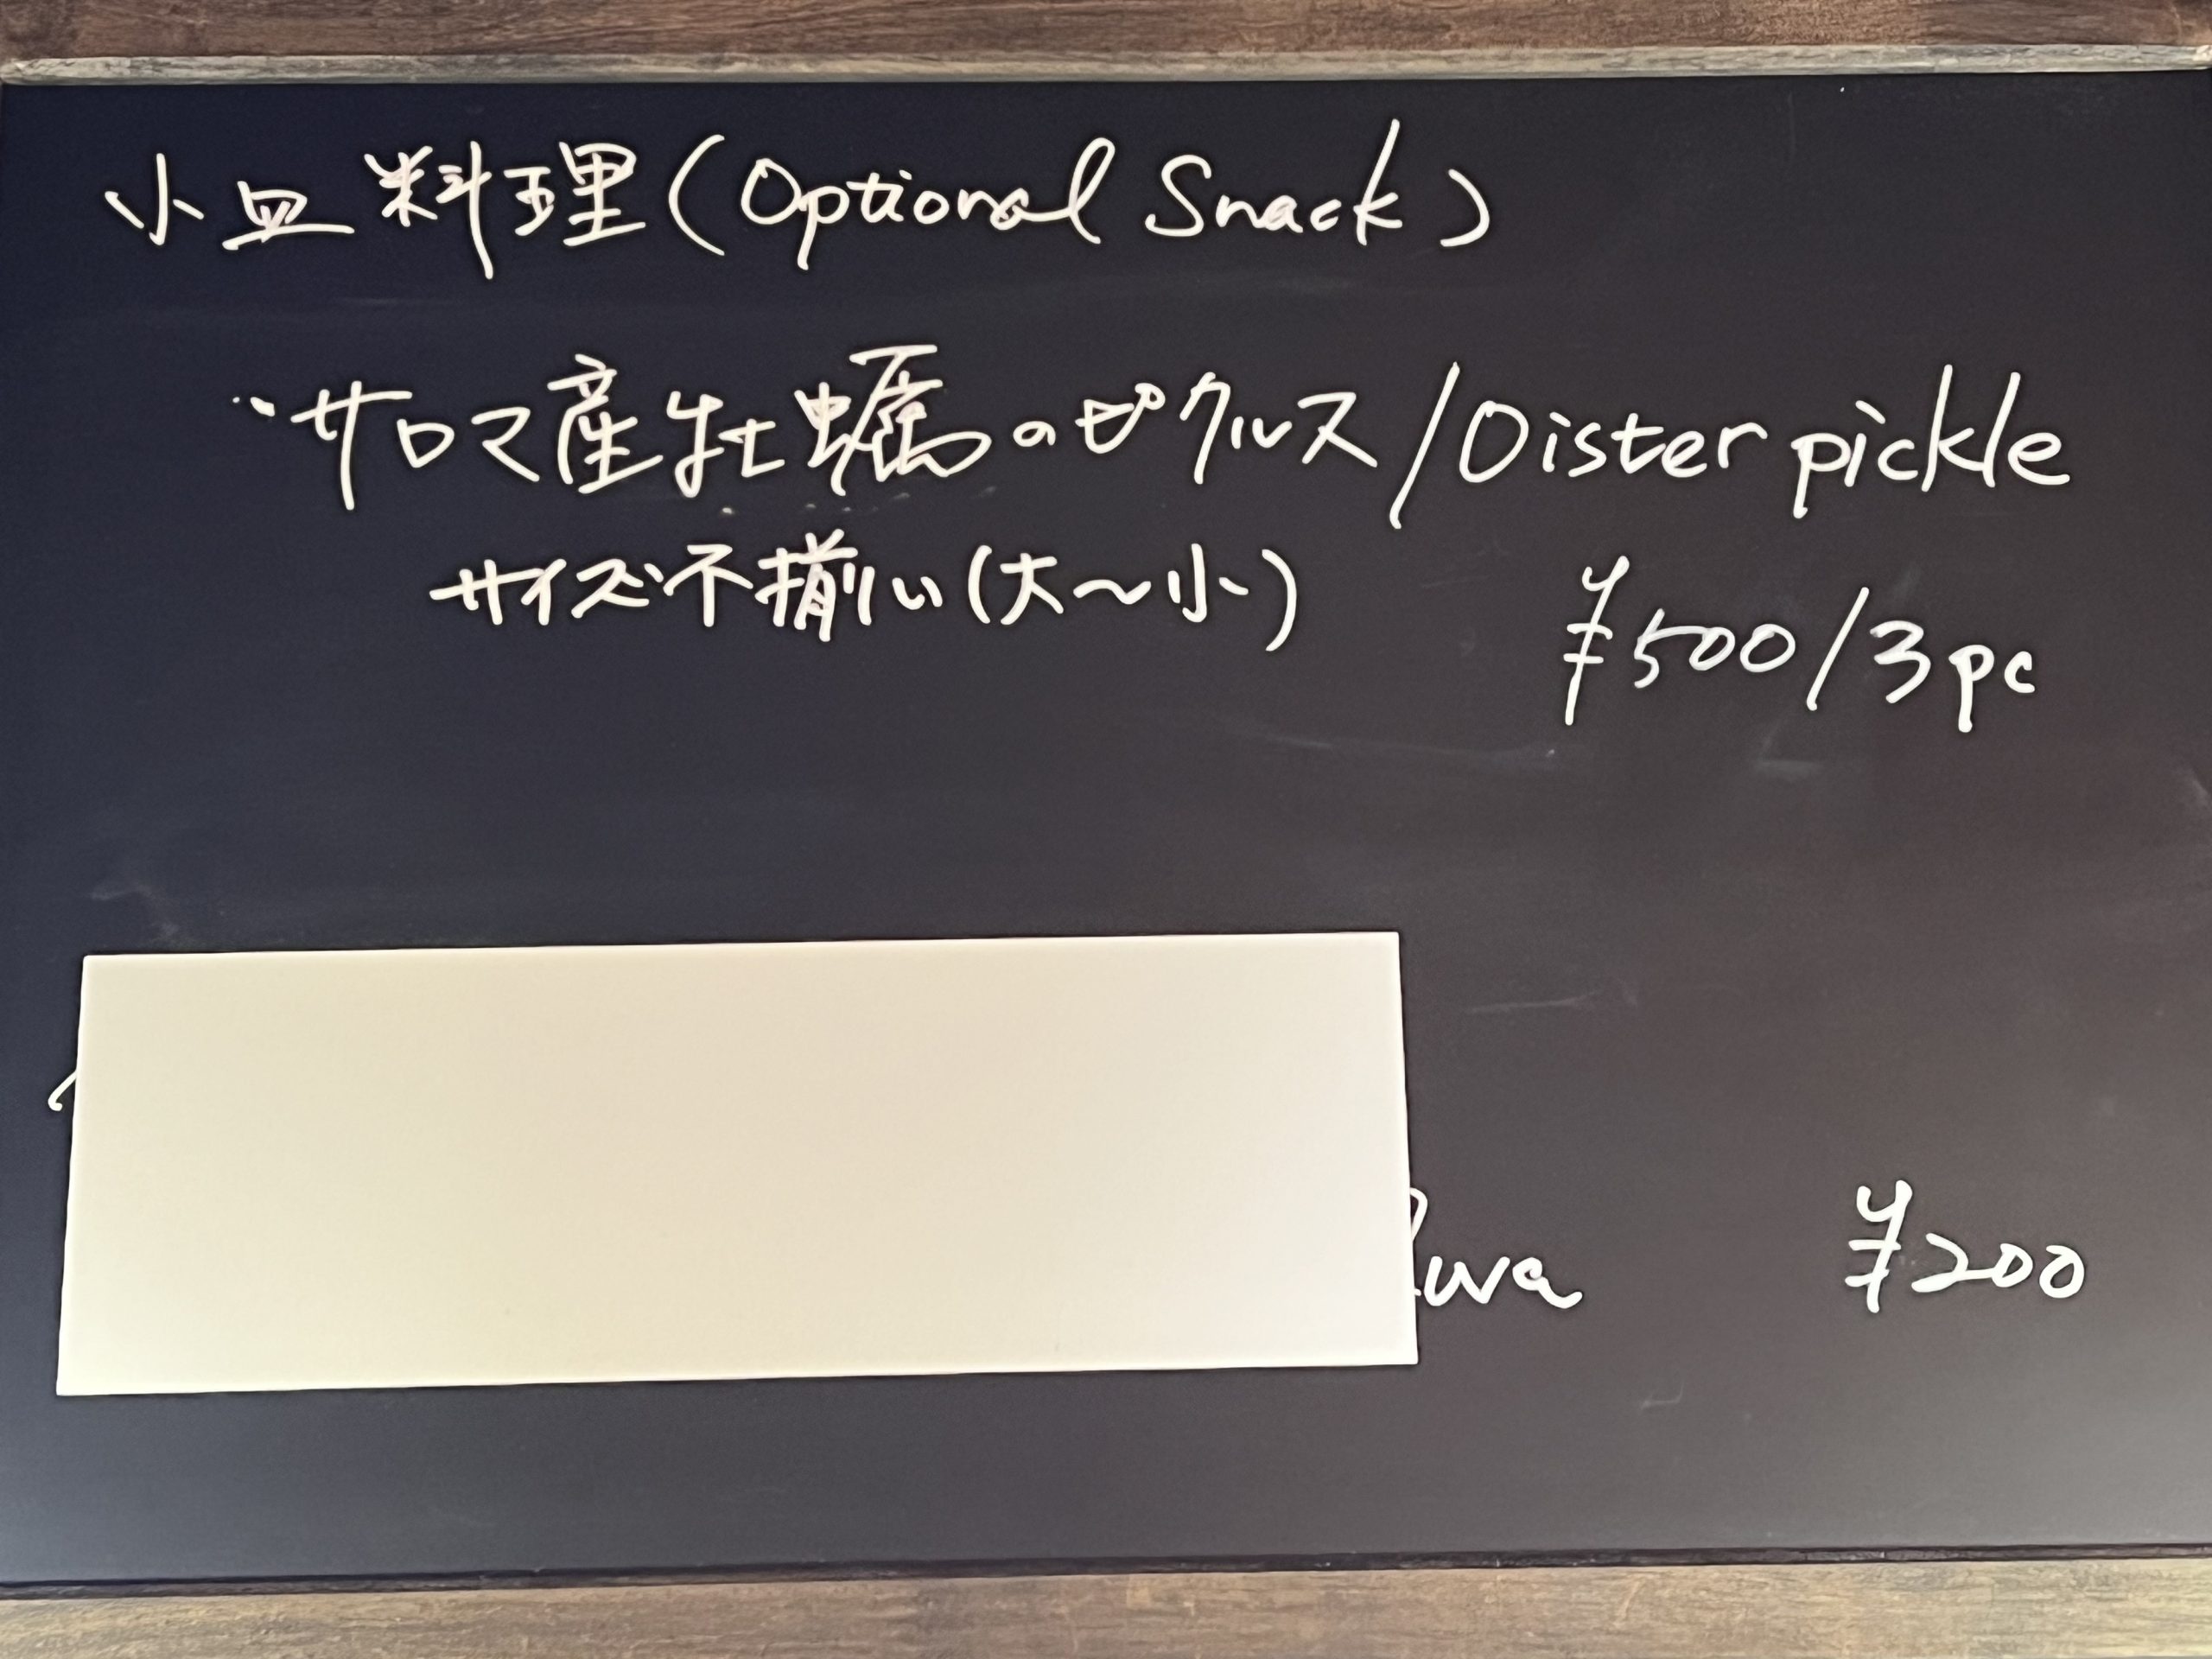 小皿料理(Optional Snack)
・サロマ産牡蠣のピクルス/Oister pickle
サイズ不揃い(大〜小)
¥500/3pc
¥200